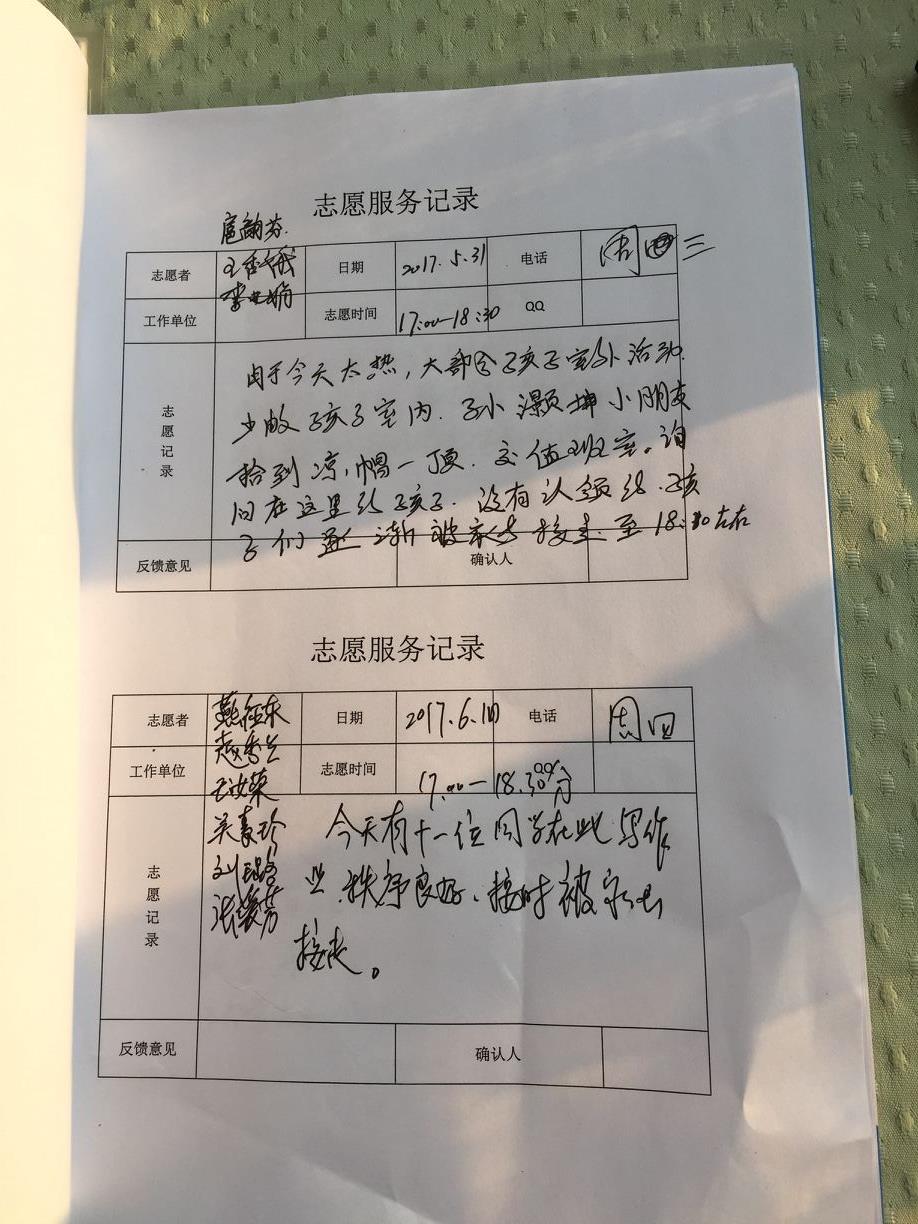 志愿服务记录
志愿者 日期 2017.5.31 电话 周三
工作单位 志愿时间 17:00-18:30 QQ
志愿记录
由于今天太热,大部分孩子室外活动.
少数孩子室内. 小朋友
拾到凉帽一顶.交值班室。询
问在这里的孩子.没有认领的.孩
子们逐渐被家长接走.至18:30左右
反馈意见 确认人
志愿服务记录
志愿者 日期 2017.6.1 电话 周四
赵秀兰
工作单位 志愿时间 17.00—18.30分 QQ
王汝荣
志愿记录
吴素珍 今天有十一位同学在此写作
业.秩序良好、按时被家长
接走。
反馈意见 确认人